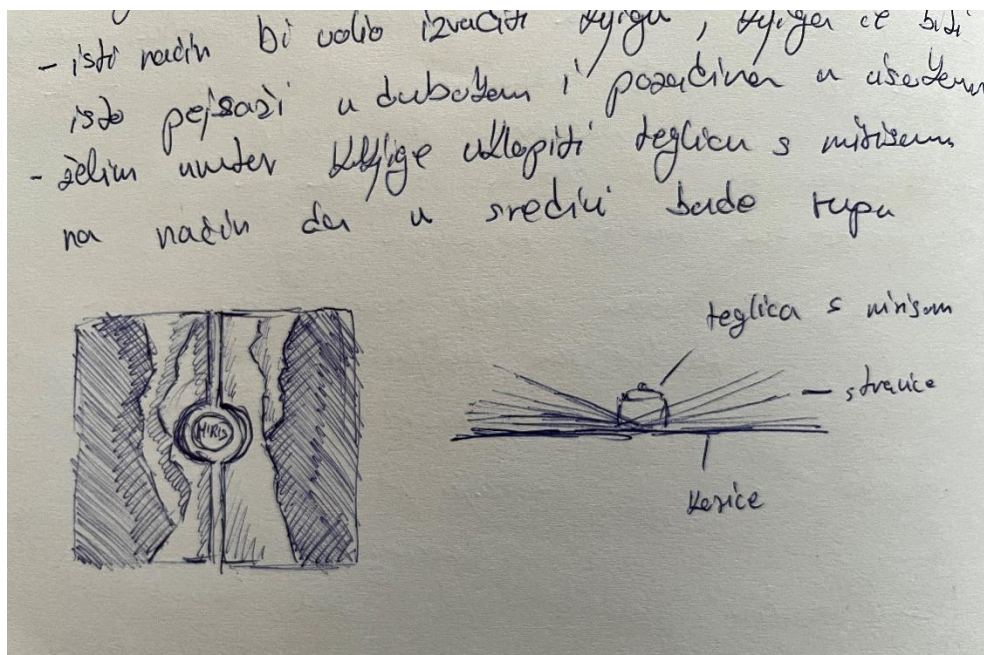 - isti način bi volio izraditi knjigu, knjiga će biti
isto pejsaži u dubokom i pozadina u
- želim unutar knjige uklopiti teglicu s mirisom
na način da u sredini bude rupa
teglica s mirisom
stranice
MIRIS
korice